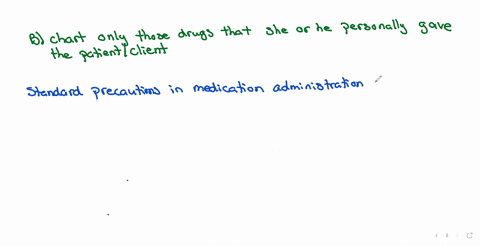 B) chart only those drugs that she or he personally gave
the patient/client
Standard precautions in medication administration